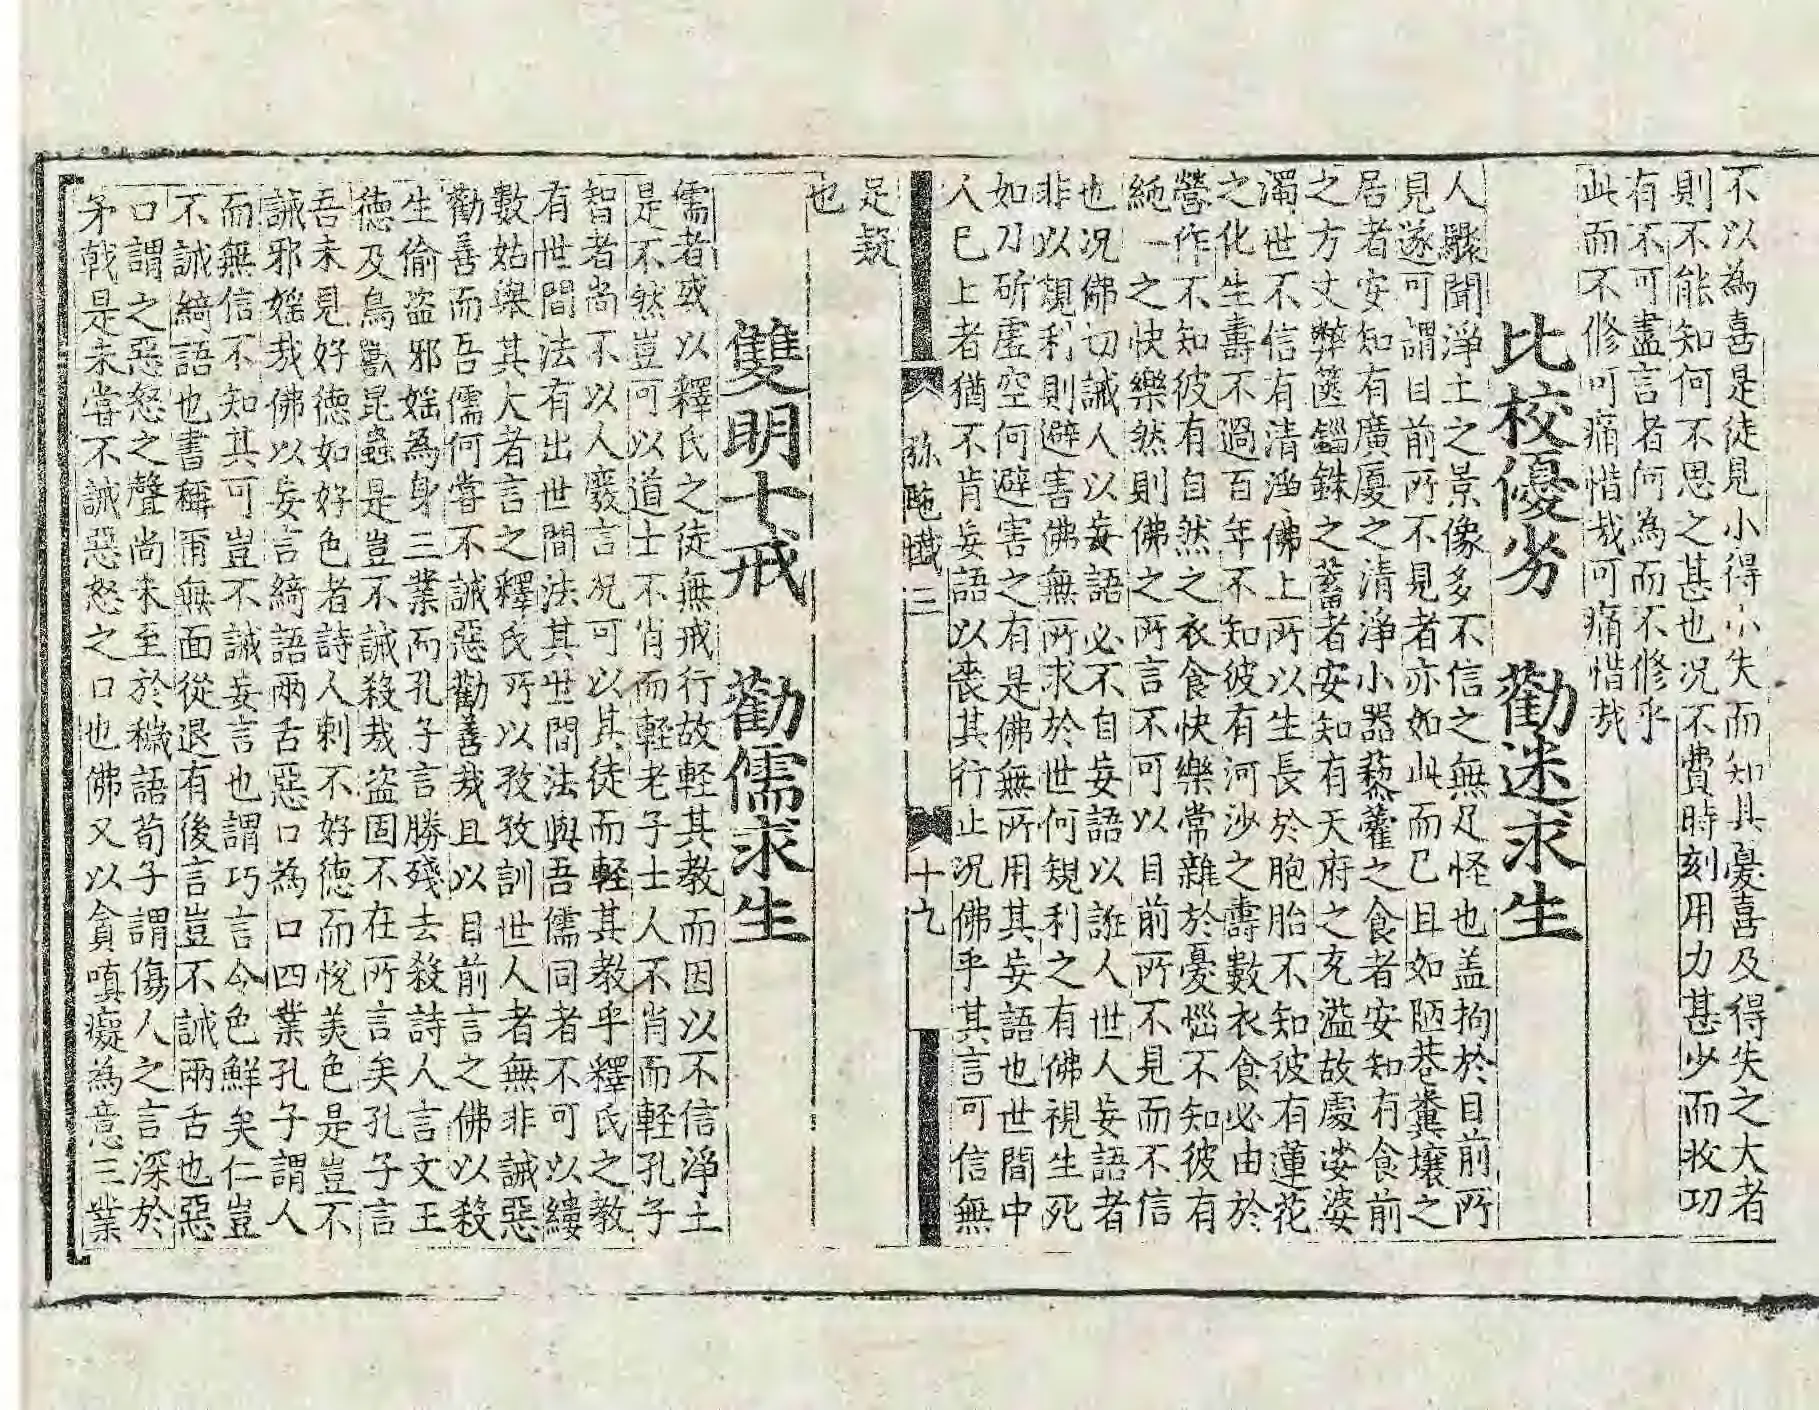 不以為喜是徒見小得小失而知其憂喜及得失之大者
則不能知何不思之甚也況不費時刻用力甚少而收功
有不可盡言者何為而不修乎
此而不修可痛惜哉可痛惜哉
比校優劣　勸迷求生
人驟聞淨土之景像多不信之無足怪也盖拘於目前所
見遂可謂目前所不見者亦如此而已且如陋巷糞壤之
居者安知有廣廈之清淨小器藜藿之食者安知有食前
之方丈弊篋錙銖之蓄者安知有天府之充溢故處娑婆
濁世不信有清涵佛上所以生長於胞胎不知彼有蓮花
之化生壽不過百年不知彼有河沙之壽數衣食必由於
營作不知彼有自然之衣食快樂常雜於憂惱不知彼有
純一之快樂然則佛之所言不可以目前所不見而不信
也況佛切誡人以妄語必不自妄語以誑人世人妄語者
非以覬利則避害佛無所求於世何覬利之有佛視生死
如刀斫虛空何避害之有是佛無所用其妄語也世間中
人已上者猶不肯妄語以喪其行止況佛乎其言可信無
孫 三　十九
足疑
也
雙明十戒　勸儒求生
儒者或以釋氏之徒無戒行故軽其教而因以不信淨土
是不然豈可以道士不肖而輕老子士人不肖而軽孔子
智者尚不以人廢言況可以其徒而軽其教乎釋氏之教
有世間法有出世間法其世間法與吾儒同者不可以縷
數姑舉其大者言之釋氏所以孜孜訓世人者無非誡惡
勸善而吾儒何嘗不誡惡勸善哉且以目前言之佛以殺
生偷盗邪婬為身三業而孔子言勝殘去殺詩人言文王
徳及鳥獸昆蟲是豈不誡殺哉盗固不在所言矣孔子言
吾未見好徳如好色者詩人刺不好徳而悅美色是豈不
誡邪婬哉佛以妄言綺語兩舌惡口為口四業孔子謂人
而無信不知其可豈不誡妄言也謂巧言令色鮮矣仁豈
不誡綺語也書稱爾無面從退有後言豈不誡兩舌也惡
口謂之惡怒之聲尚未至於穢語荀子謂傷人之言深於
矛戟是未嘗不誡惡怒之口也佛又以貪嗔癡為意三業